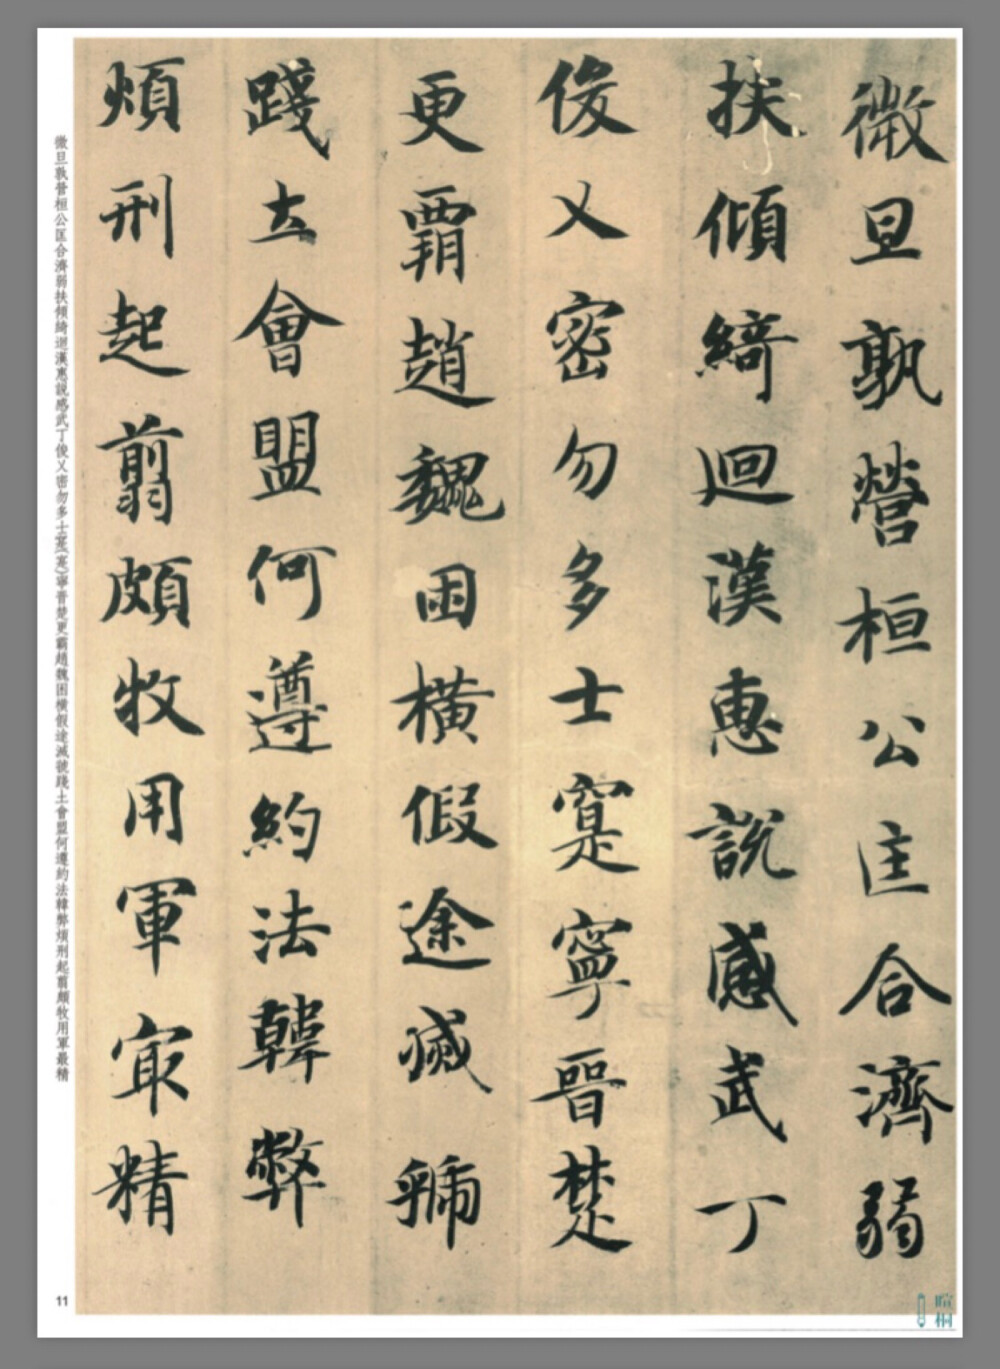 微旦孰營桓公匡合濟弱
扶傾綺迴漢惠說感武丁
俊乂密勿多士寔寧晉楚
更霸趙魏困橫假途滅虢
踐土會盟何遵約法韓弊
煩刑起翦頗牧用軍最精
微旦孰營桓公匡合濟弱扶傾綺迴漢惠說感武丁俊乂密勿多士寔(寔)寧晉楚更霸趙魏困橫假途滅虢踐土會盟何遵約法韓弊煩刑起翦頗牧用軍最精
11
暄桐